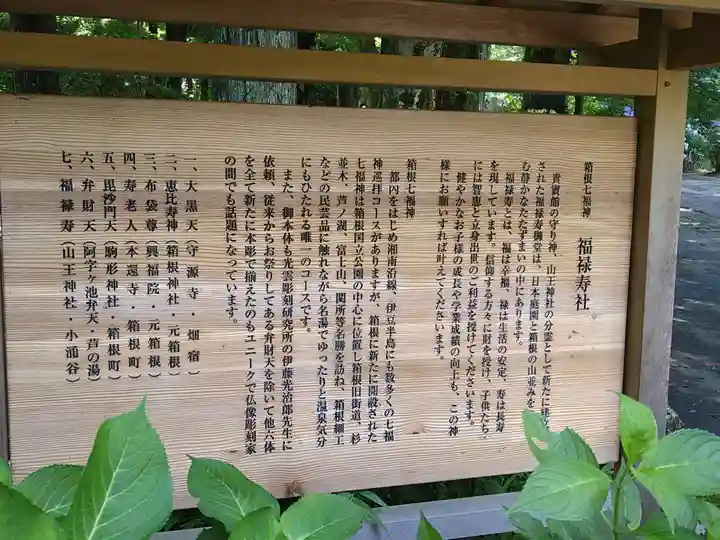 箱根七福神
福禄寿社
貴賓館の守り神、山王神社の分霊として新たに建
された福禄寿
堂は、日本庭園と箱根の山並みを
む静かなたたずまいの中にあります。
福禄寿とは、福は幸福、禄は生活の安定、寿は長寿
を現しています。信仰する方々に財を授け、子供たち
には智恵と立身出世のご利益を授けてくださいます。
健やかなお子様の成長や学業成績の向上も、この神
様にお願いすれば叶えてくださいます。
箱根七福神
都内をはじめ湘南沿線、伊豆半島にも数多くの七福
神巡拝コースがありますが、箱根に新たに開設された
七福神は箱根国立公園の中心に位置し箱根旧街道、杉
並木、芦ノ湖、富士山、関所等名勝を訪ね、箱根細工
などの民芸品に触れながら名湯でゆったりと温泉気分
にもひたれる唯一のコースです。
また、御本体も光雲彫刻研究所の伊藤光治郎先生に
依頼、従来からお祭りしてある弁財天を除いて他六体
を全て新たに本彫で揃えたのもユニークで仏像彫刻家
の間でも話題になっています。
一、大黒天(守源寺・畑宿)
二、恵比寿神(箱根神社・元箱根)
三、布袋尊(興福院・元箱根)
四、寿老人(本還寺・箱根町)
五、毘沙門天(駒形神社・箱根町)
六、弁財天(阿字ヶ池弁天・芦の湯)
七、福禄寿(山王神社・小涌谷)